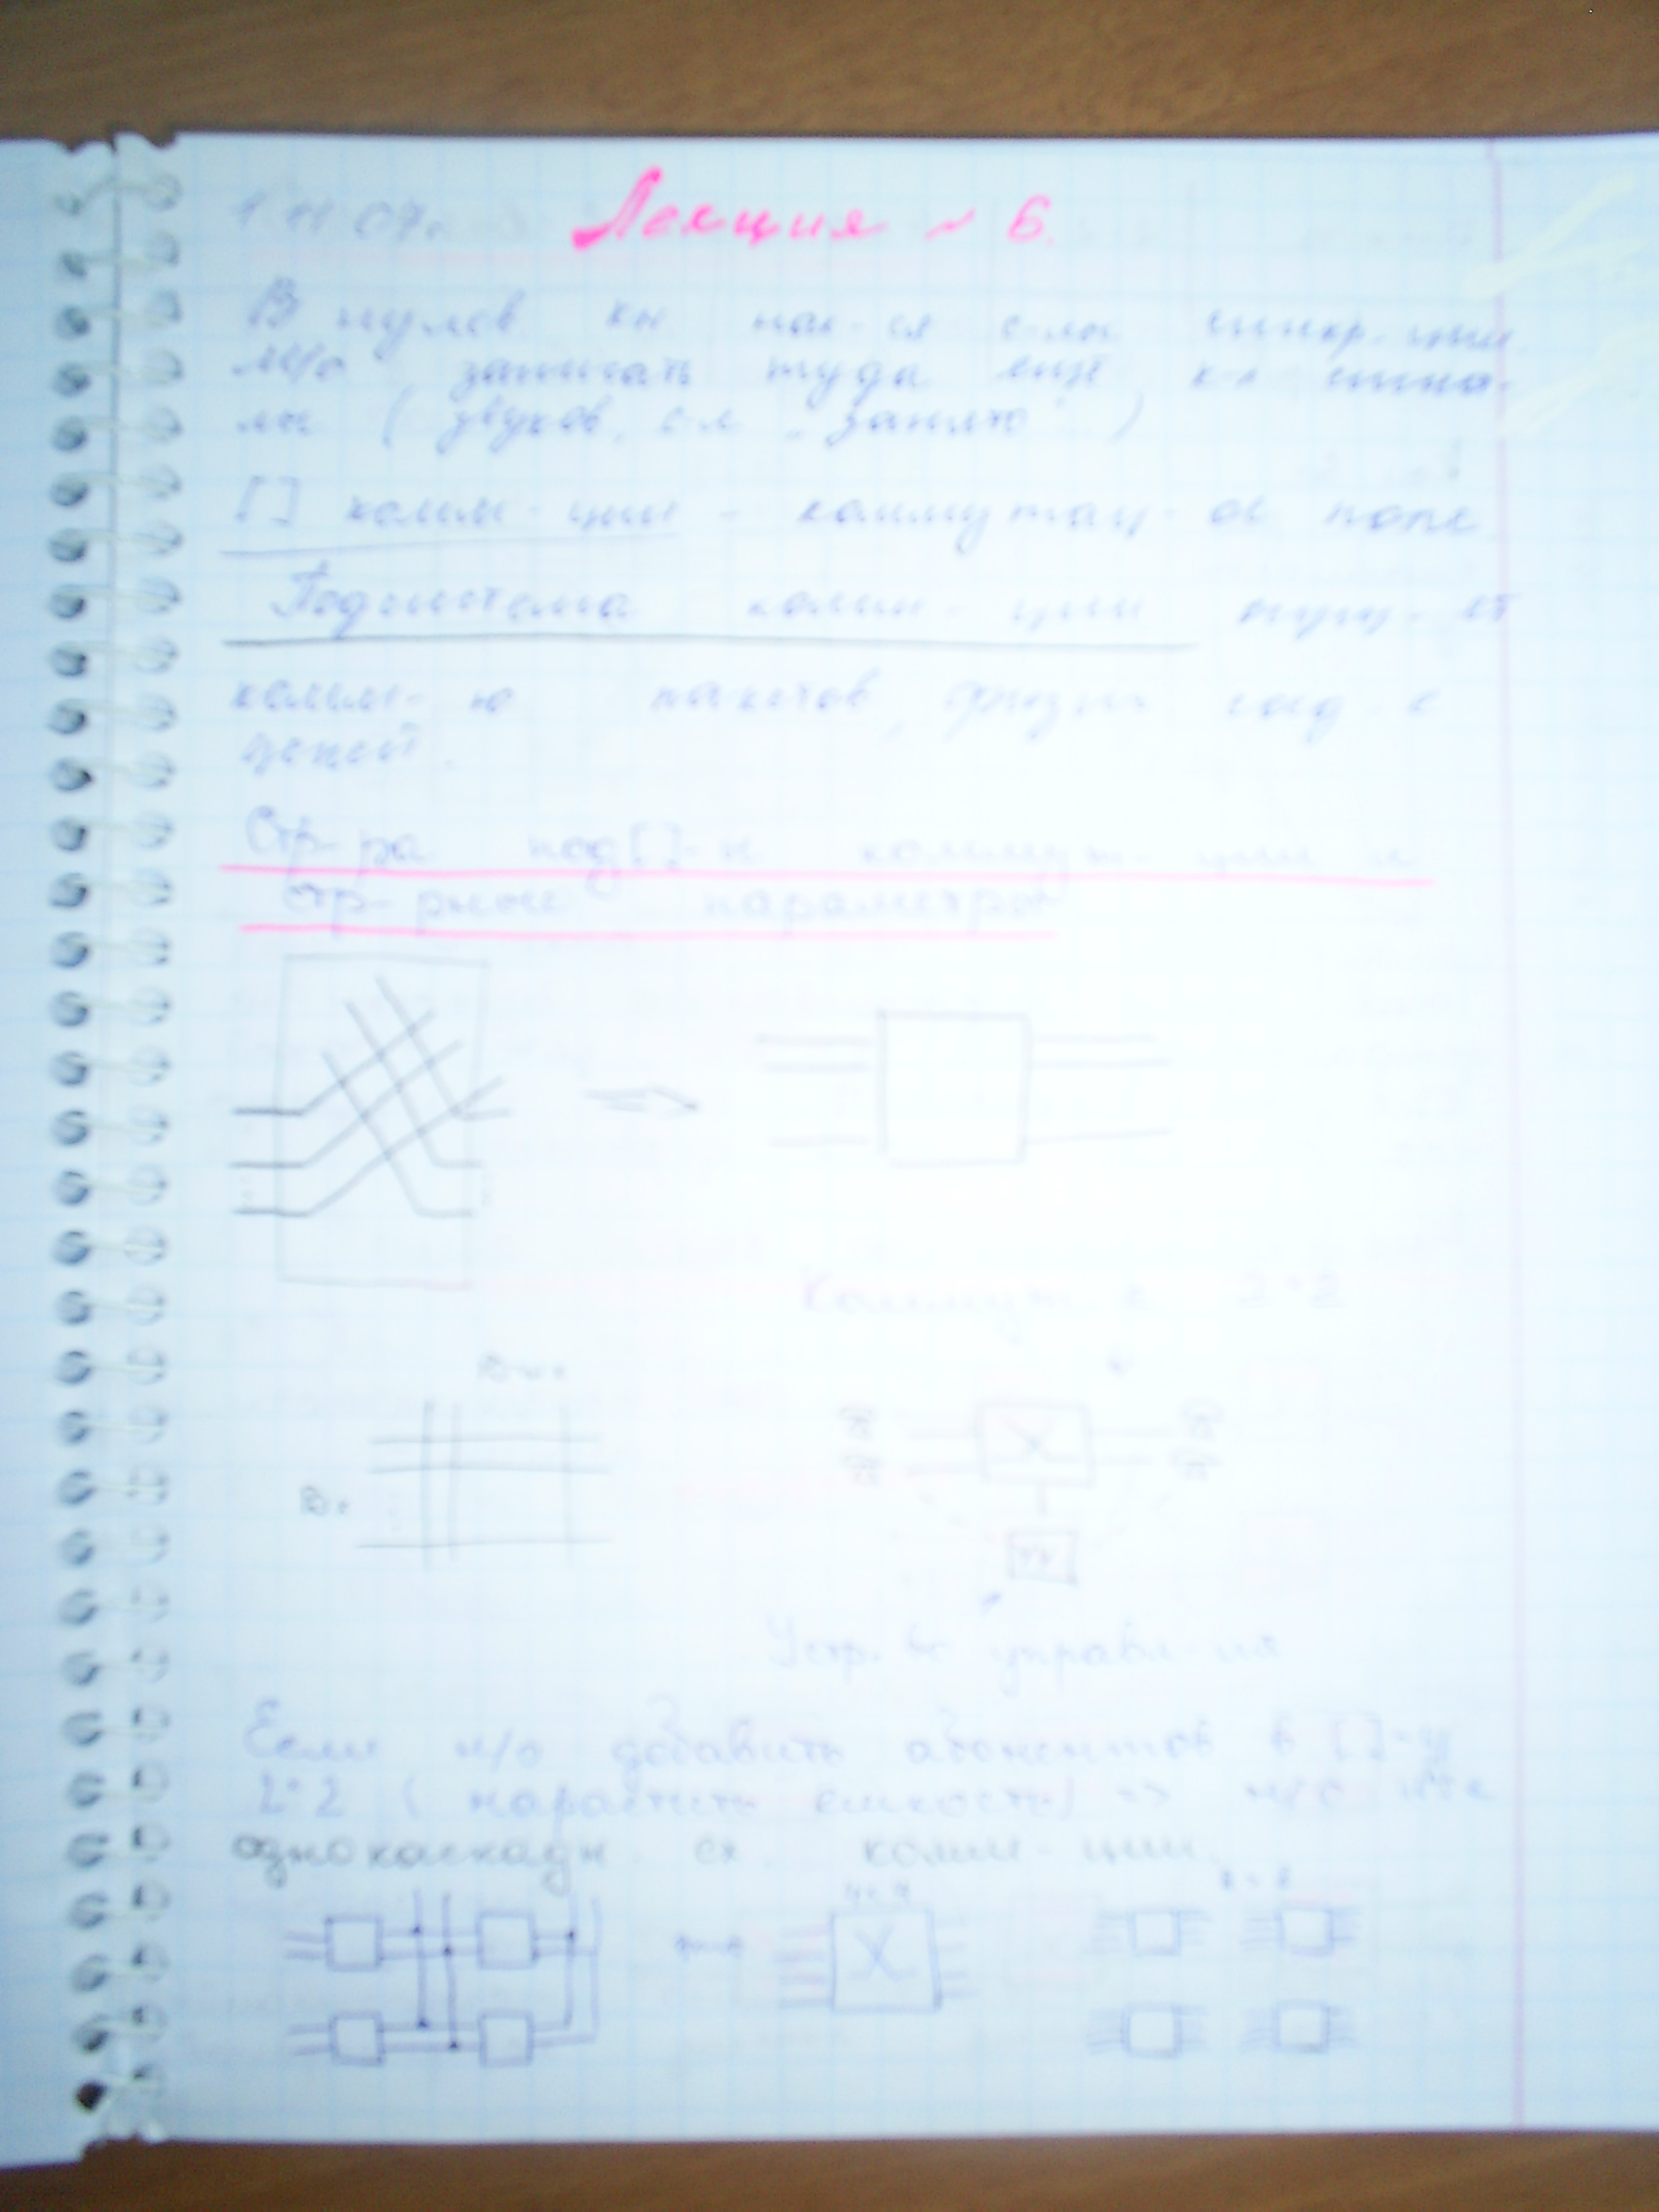 1.11.07г. Лекция ~ 6.
В нулев. кн. нах-ся с-лы синхр-ции.
М/о записать туда ещё к-л сигна-
лы (звуков, с-л „занято")
[] комм-ции - коммутац-ое поле
Подсистема комм-ции
комм-ю пакетов, физич. соед. с
цепей.
Стр-ра под[]-ы коммут-ции и
стр-рные параметры
Коммут. с. 2×2
Вых.
Вх.
УУ
Устр-во управл-ия
Если н/о добавить абонентов в []-у
2×2 (нарастить емкость) => м/о исп.
однокаскадн. сх. комм-ции.
4×4